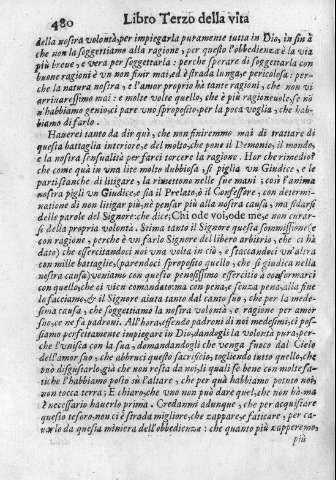 480 Libro Terzo della vita
della nostra volontà, per impiegarla puramente tutta in Dio, in sin à
che non la soggettiamo alla ragione, per questo l'obbedienza è la via
più breve, e vera per soggettarla: perche sperare di soggettarla con
buone ragioni è vn non finir mai, ed è strada lunga, e pericolosa: per-
che la natura nostra, e l'amor proprio hà tante ragioni, che non vi
arriuaressimo mai: e molte volte quello, che è più ragioneuole, se nõ
n'habbiamo genio, ci pare vno sproposito, per la poca voglia, che hab-
biamo di farlo.
Hauerei tanto da dir quà, che non finiremmo mai di trattare di
questa battaglia interiore, e del molto, che pone il Demonio, il mondo,
e la nostra sensualità per farci torcere la ragione. Hor che rimedio?
che come quà in vna lite molto dubbiosa, si piglia vn Giudice, e le
parti stanche di litigare, la rimettono nelle sue mani; così l'anima
nostra pigli vn Giudice, ò sia il Prelato, ò il Confessore, con determi-
natione di non litigar più, nè pensar più alla nostra causa, ma fidarsi
delle parole del Signore: che dice; Chi ode voi, ode me, e non curar-
si della propria volontà. Stima tanto il Signore questa sommissione (e
con ragione, perche è vn farlo Signore del libero arbitrio, che ci hà
dato) che essercitandoci noi vna volta in ciò, e staccandoci vn'altra
con mille battaglie, (parendoci sproposito quello, che si giudica nella
nostra causa) veniamo con questo penosissimo essercitio à conformarci
con quello, che ci vien comandato: ma con pena, e senza pena, alla fine
lo facciamo, & il Signore aiuta tanto dal canto suo, che per la mede-
sima causa, che soggettiamo la nostra volontà, e ragione per amor
suo, ce ne fà padroni. All'hora, essendo padroni di noi medesimi, ci pos-
siamo perfettamente impiegare in Dio, dandogli la volontà pura, per-
che l'vnisca con la sua, domandandogli che venga fuoco dal Cielo
dell'amor suo, che abbruci questo sacrificio, togliendo tutto quello, che
può disgustarlo, già che non resta da noi, li quali se bene con molte fa-
tiche l'habbiamo posto sù l'altare, che per quà habbiamo potuto noi,
non tocca terra; E' chiaro, che vno non può dare quel, che non hà: ma
è necessario hauerlo prima. Credanmi adunque, che per acquistare
questo tesoro, non ci è strada migliore, che zappare, e faticare, per ca-
uarlo da questa miniera dell'obbedienza: che quanto più zapparemo,
più